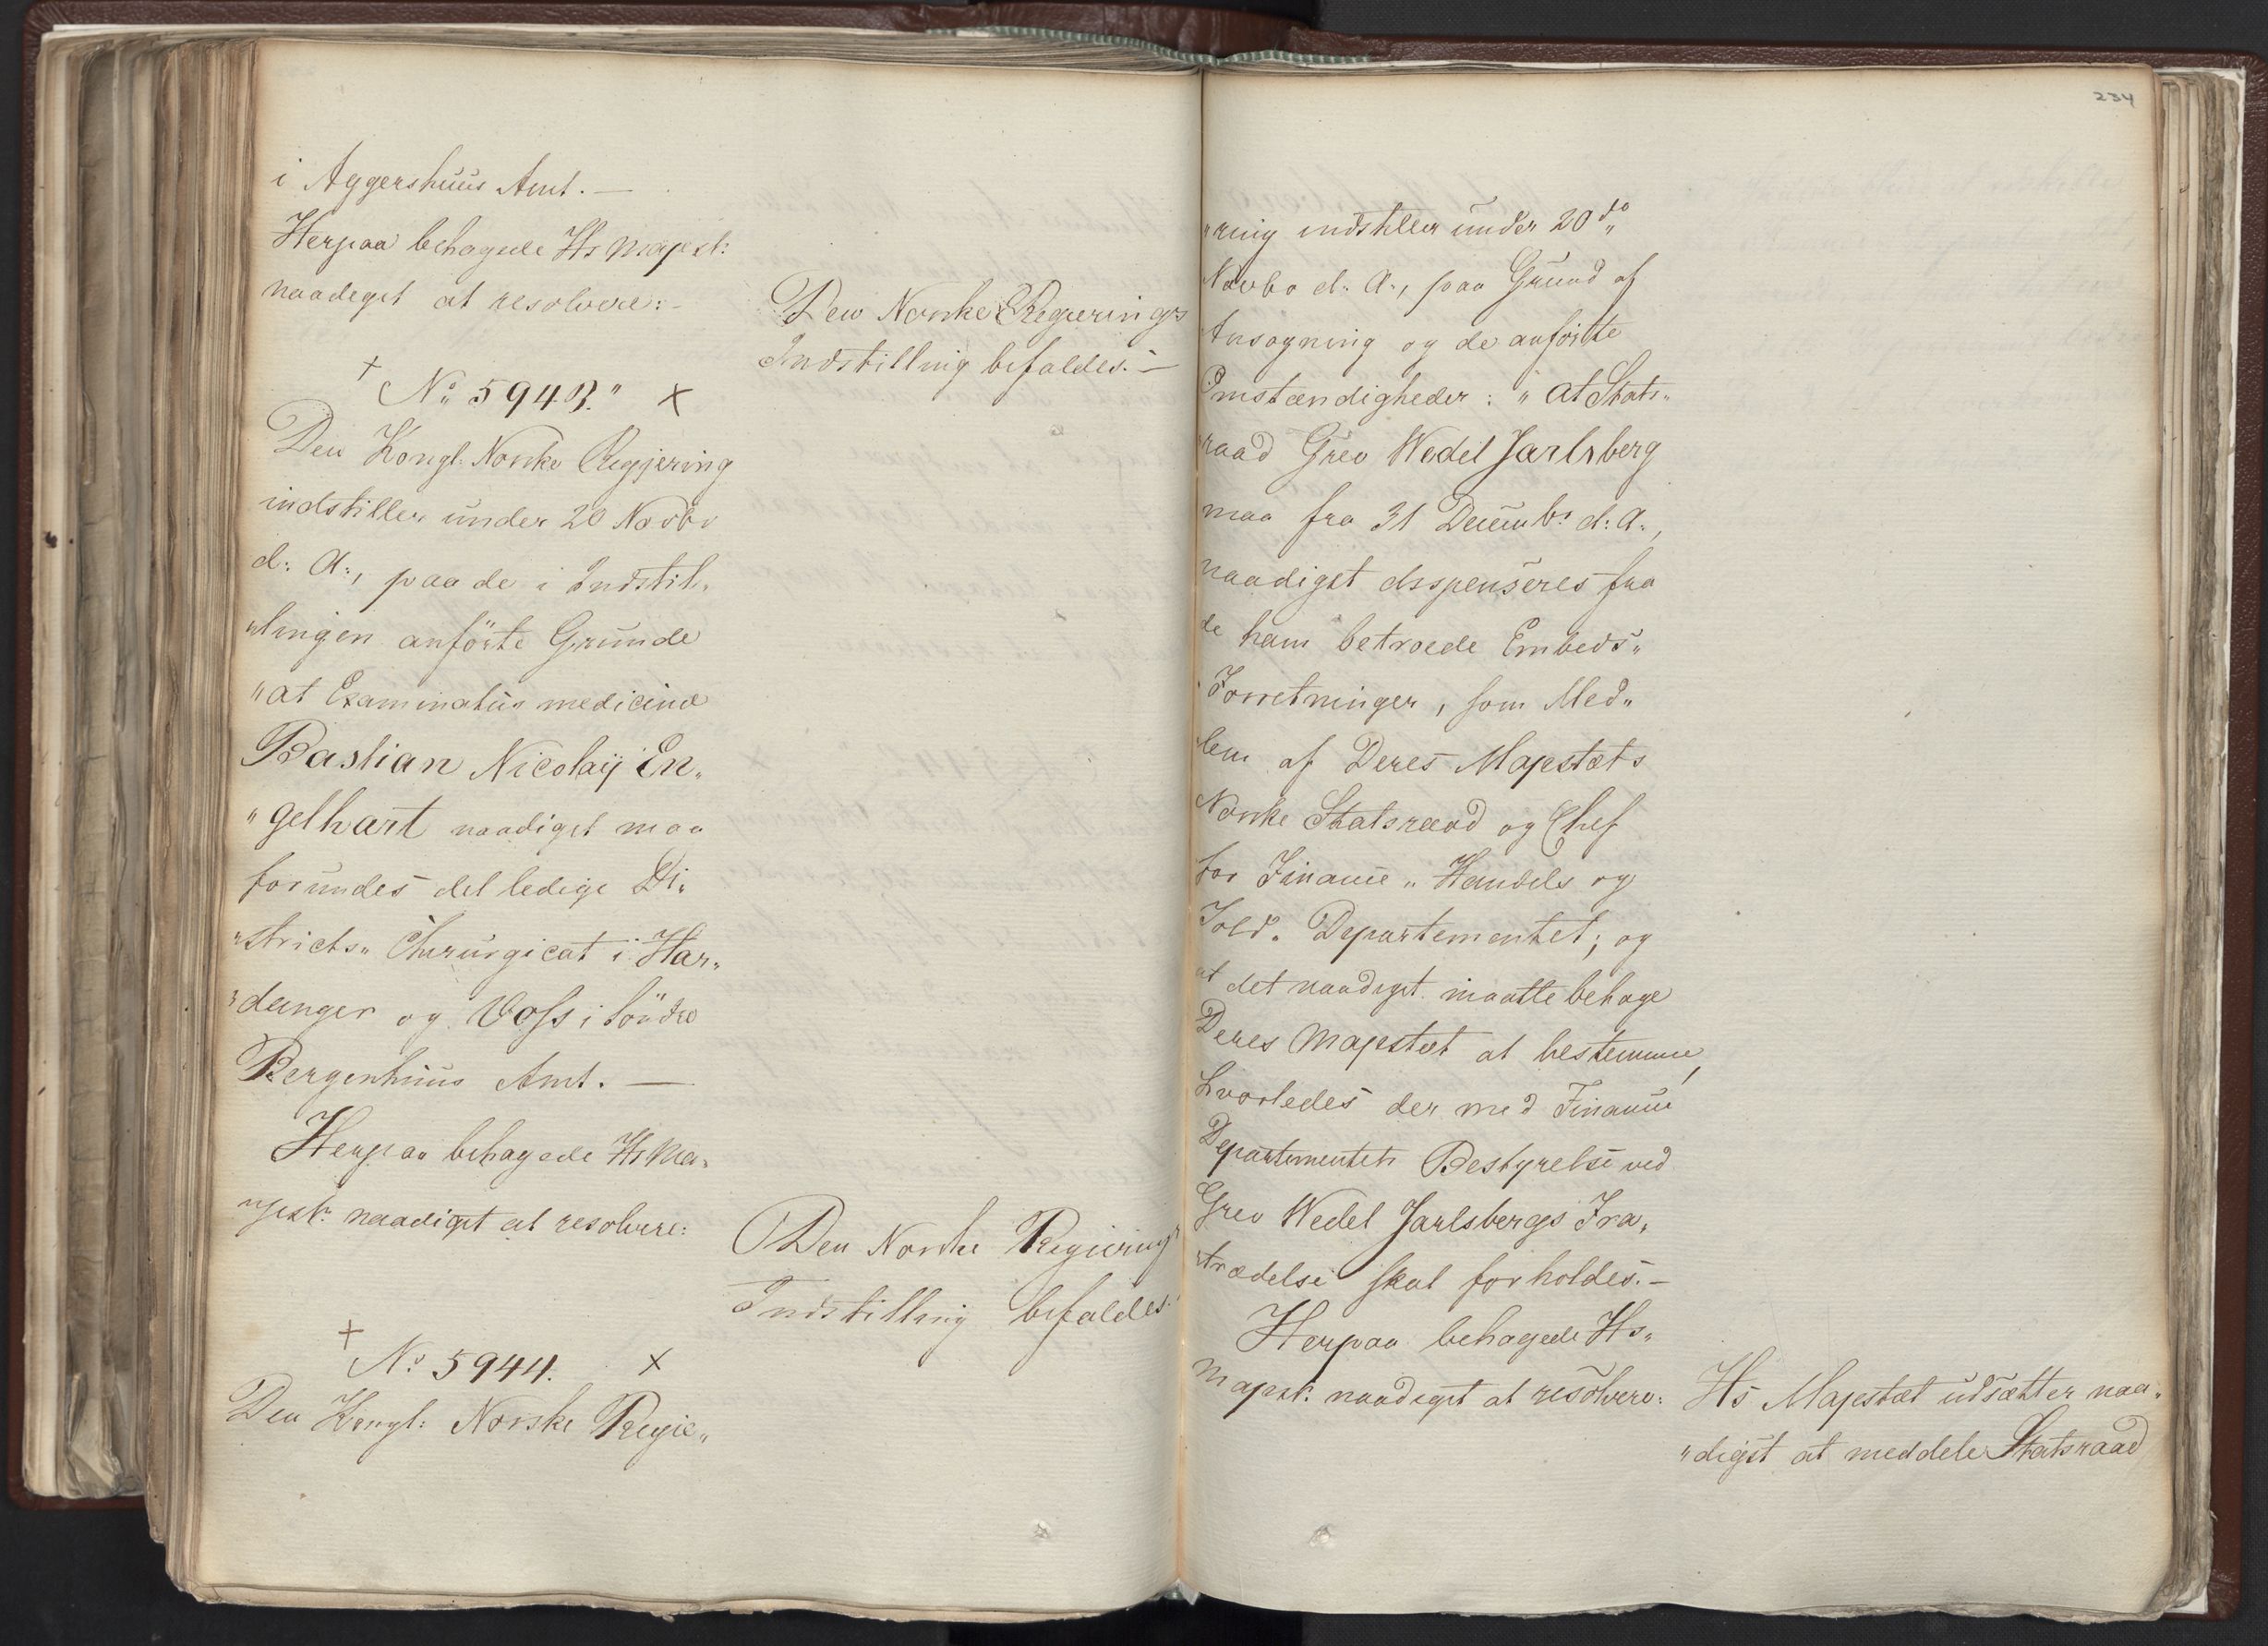 i Aggershuus Amt. —
Herpaa behagede Hs Majest:
naadigst at resolvere: -
Den Norske Regjerings
Indstilling bifaldes. —
+ No 5943." x
Den Kongl. Norske Regjering
indstiller under 20 Novbr
d: A:, paa de i Indstil„
„lingen anförte Grunde
„at Examinatus medicinæ
Bastian Nicolaij En„
„gelhart naadigst maa
forundes det ledige Di„
„stricts„ Chirurgicat i Har„
„danger og Voss i Söndre
Bergenhuus Amt. —
Herpaa behagede Hs Ma„
„jest: naadigst at resolvere:
Den Norske Regierings
Indstilling bifaldes.
+ No 5944. x
Den Kongl: Norske Regie„
234
„ring indstiller under 20 do
Novbr d: A:, paa Grund af
Ansøgning og de anförte
Omstændigheder: „at Stats„
„raad Grev Wedel Jarlsberg
maa fra 31 Decembr d: A:,
naadigst dispenseres fra
de ham betroede Embeds„
„Forretninger, som Med„
„lem af Deres Majestæts
Norske Statsraad og Chef
for Finance„ Handels og
Told„ Departementet; og
at det naadigst maatte behage
Deres Majestæt at bestemme,
hvorledes der med Finance
Departementets Bestyrelse ved
Grev Wedel Jarlsbergs Fra„
„trædelse skal forholdes. —
Herpaa behagede Hs„
Majest: naadigst at resolvere:
Hs Majestæt udsætter naa„
„digst at meddele Statsraad